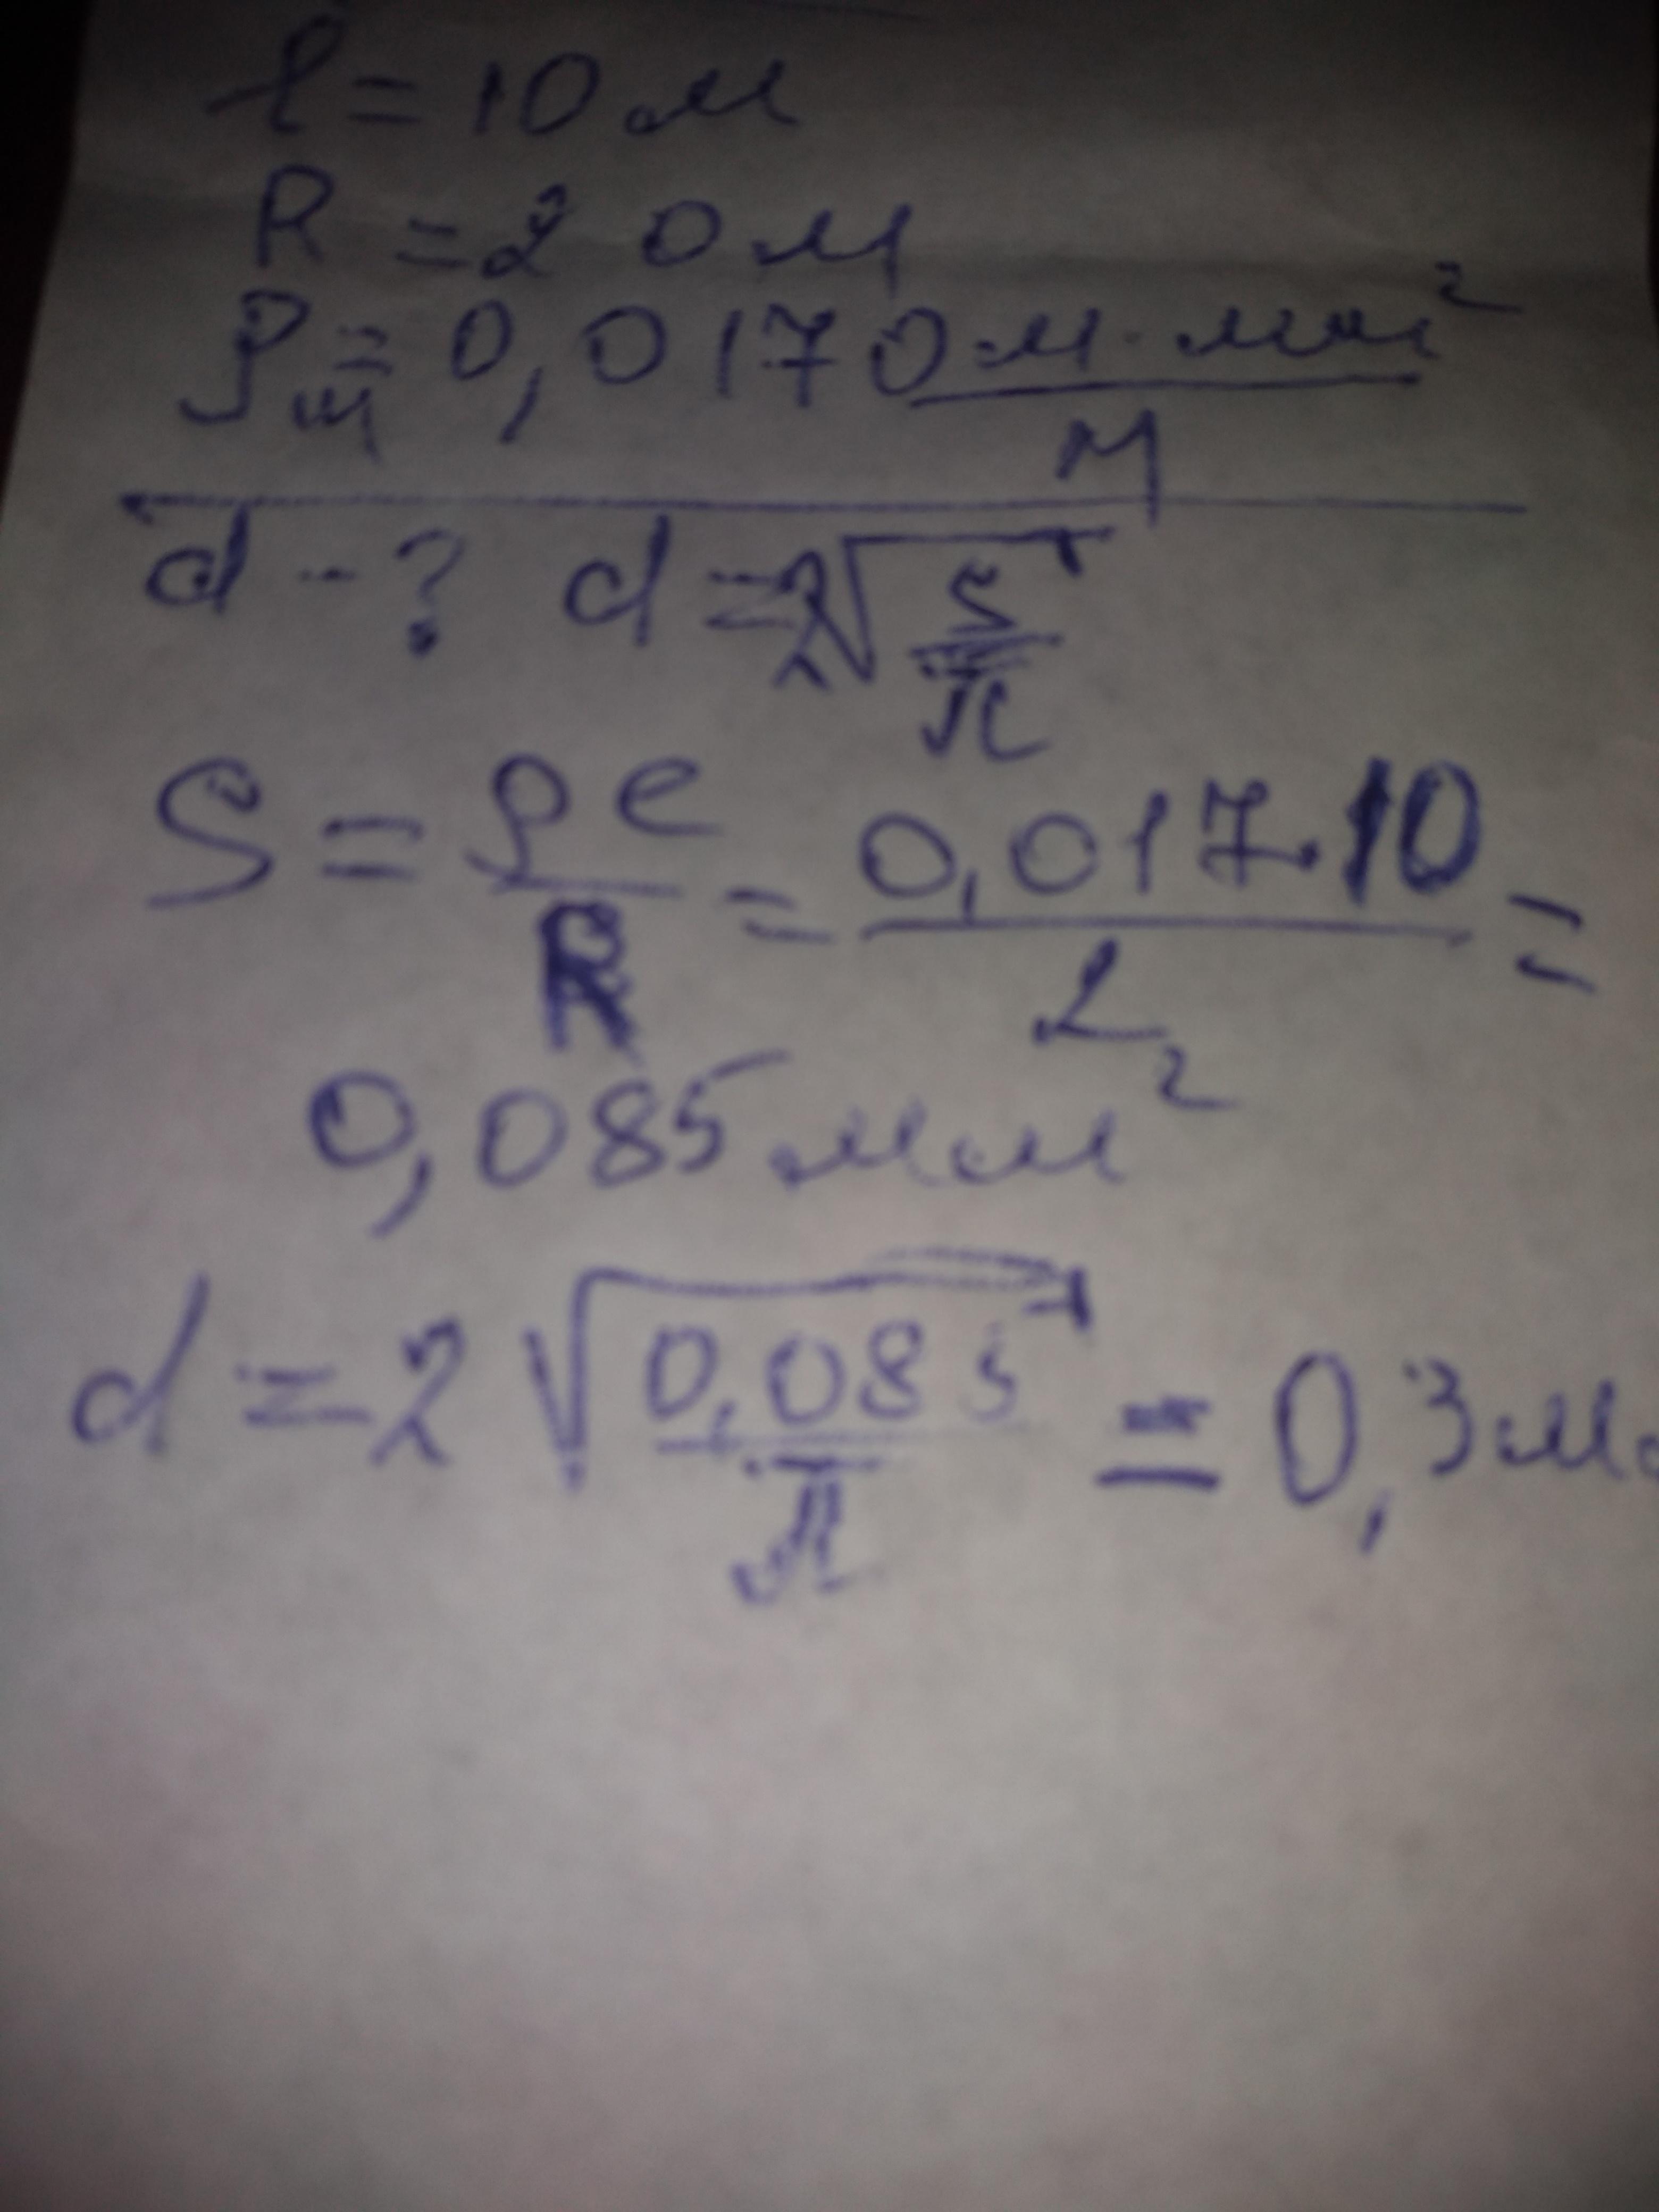 l = 10 м
R = 2 Ом
ρм = 0,017 Ом·мм²/м
d - ? d = 2√(S/π)
S = ρl/R = 0,017·10/2 =
0,085 мм²
d = 2√(0,085/π) = 0,3 м